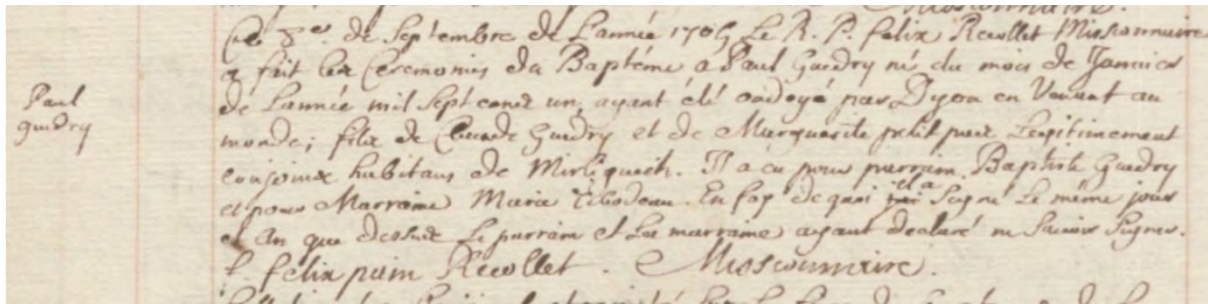 Missionnaire.
Paul
guedry
Ce 3e. de Septembre de L'année 1705 Le R. P. felix Recollet Missionnaire
a fait les Ceremonies du Baptéme a Paul Guedry né du mois de Janvier
de L'année mil Sept cent un, ayant été ondoyé par Dyon en Venant au
monde; fils de Claude Guedry et de Marguerite petit pas Legitimement
conjoint habitans de Mirliguech. Il a eu pour parrain Baptiste Guedry
et pour Marraine Marie Tibodeau. En foy de quoi il a Signé Le même jour
et An que dessus Le parrain et La marraine ayant declaré ne Savoir Signer.
f. felix pain Recollet. Missionnaire.